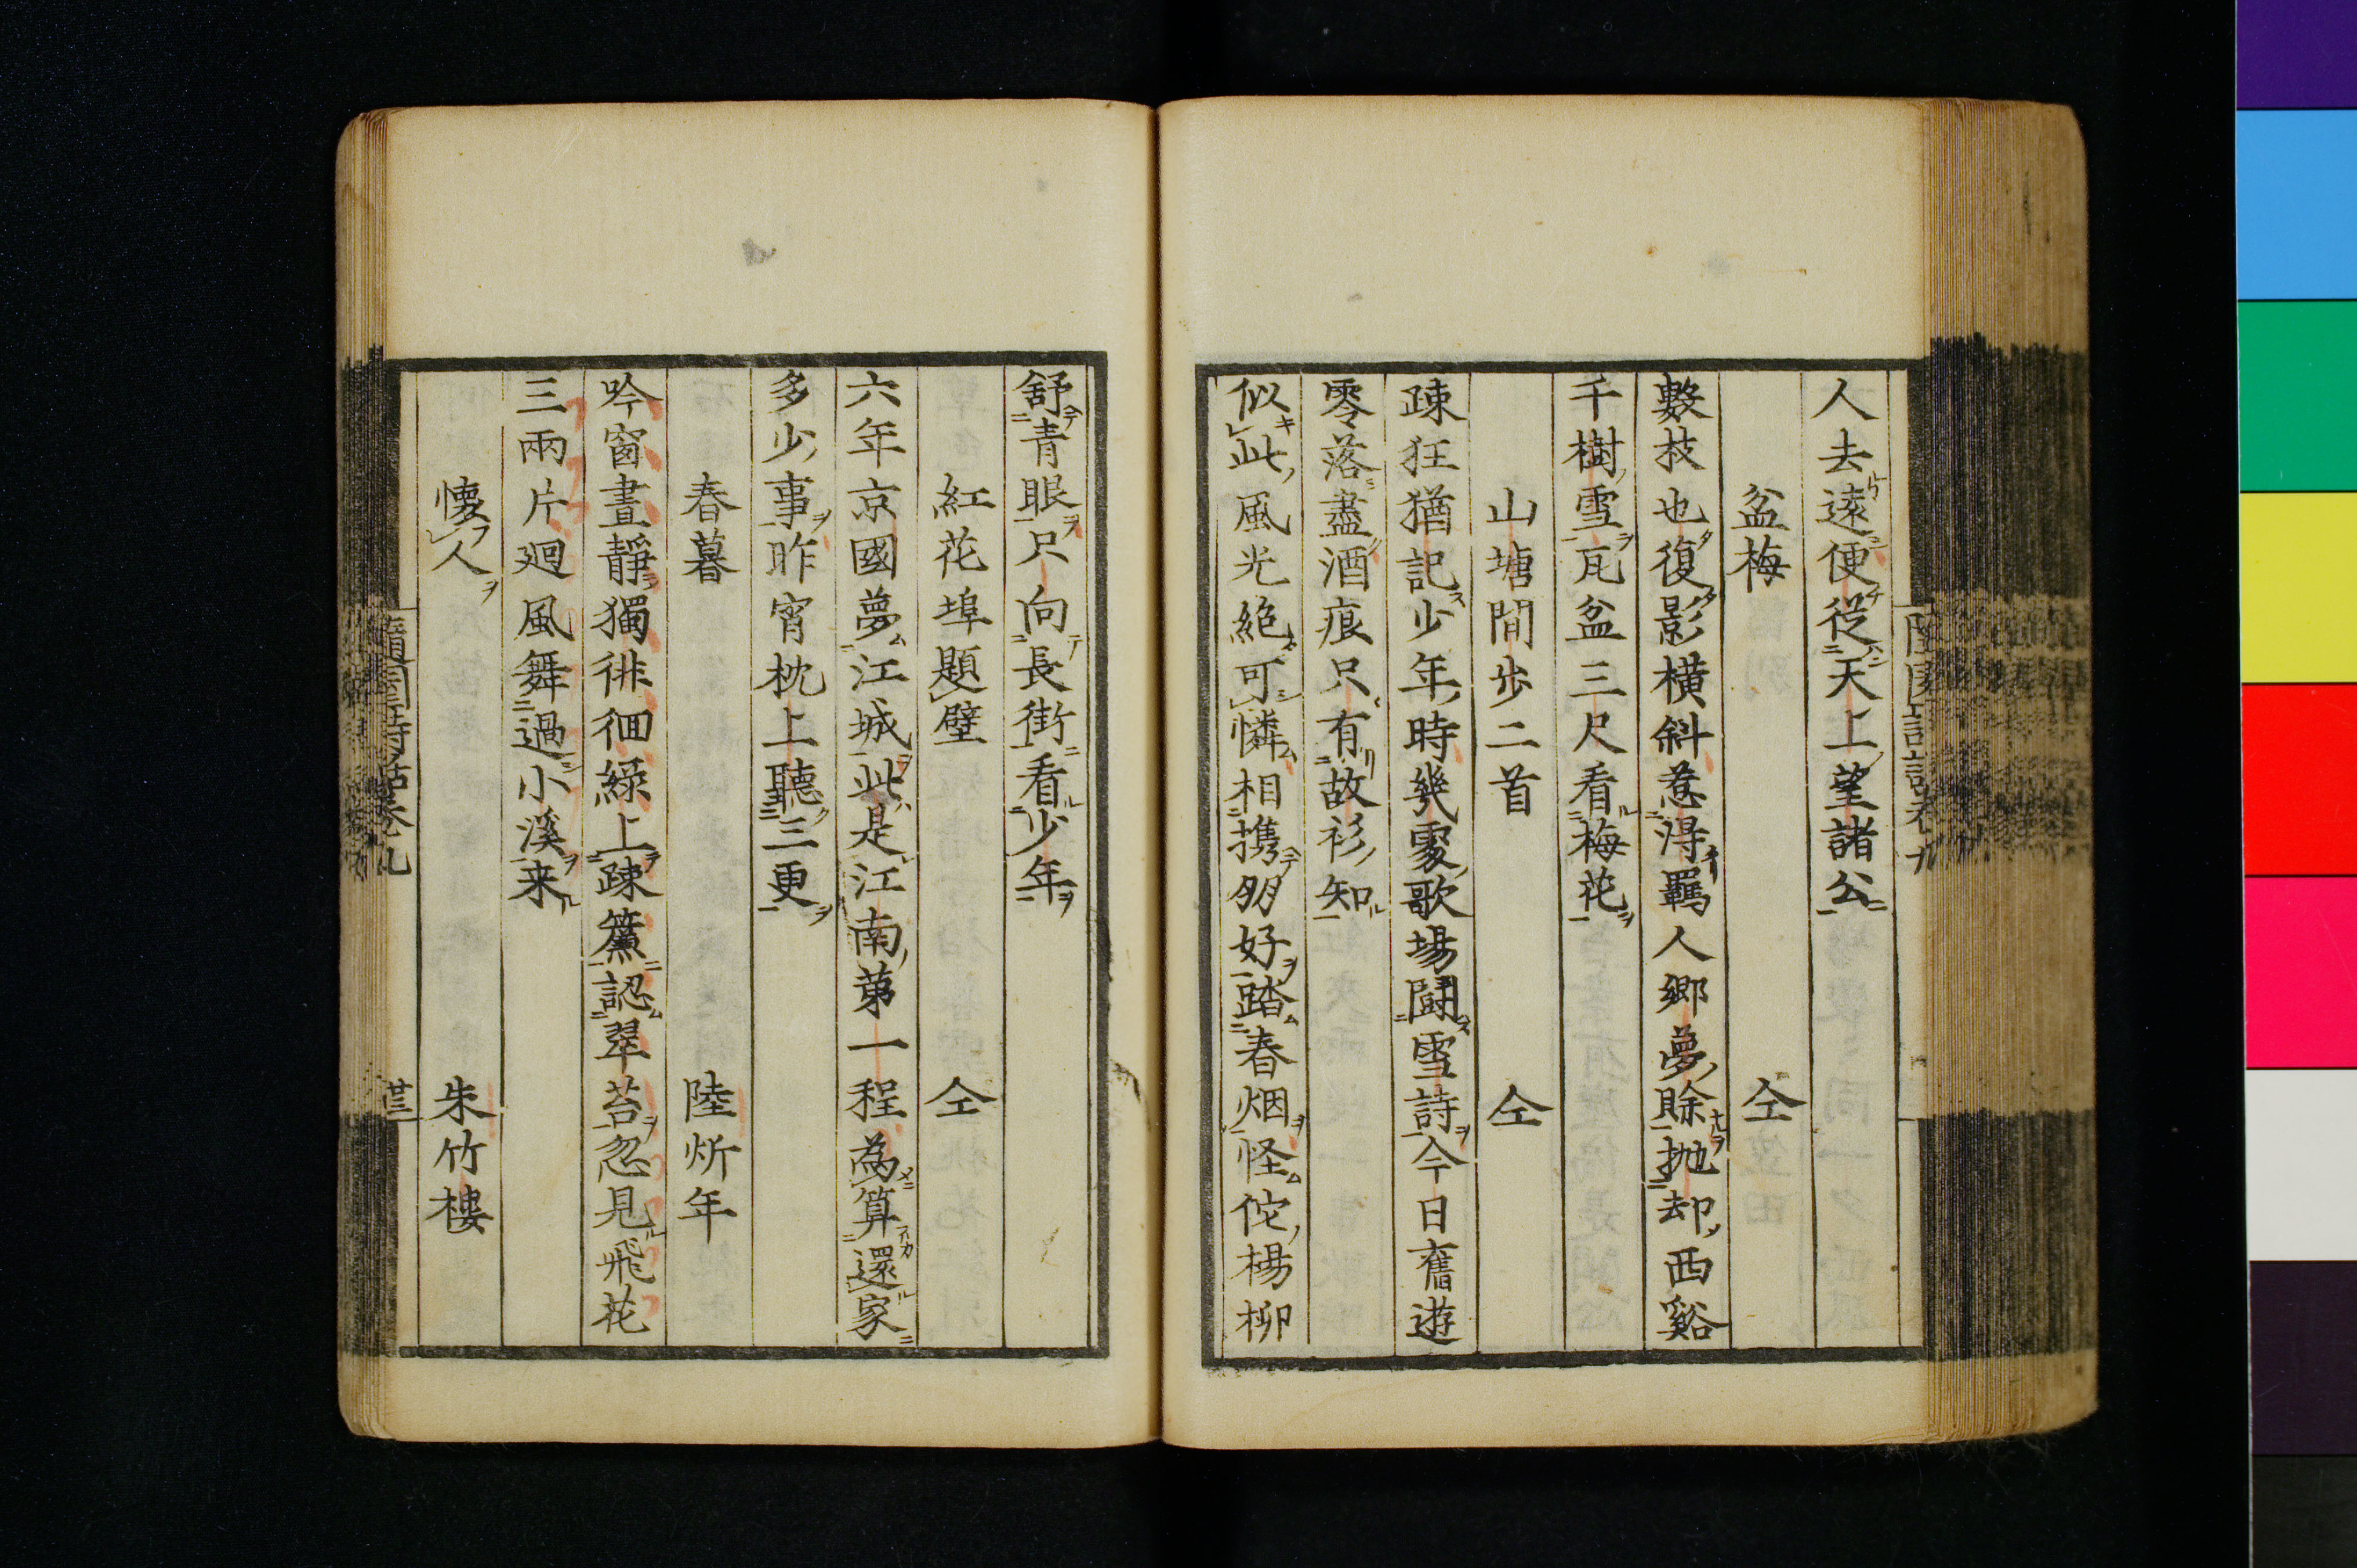 人去遠便從天上望諸公
盆梅 仝
數枝也復影橫斜惹得羈人鄉夢賖拋却西谿
千樹雪瓦盆三尺看梅花
山塘間步二首 仝
踈狂猶記少年時幾處歌場鬪雪詩今日舊遊
零落盡酒痕只有故衫知
似此風光絕可憐相携朋好踏春烟怪佗楊柳
舒青眼只向長街看少年
紅花埠題壁 仝
六年京國夢江城此是江南第一程為算還家
多少事昨宵枕上聽三更
春暮 陸炘年
吟窗晝靜獨徘徊綠上踈簾認翠苔忽見飛花
三兩片廻風舞過小溪来
懐人 朱竹樓
隨園詩話卷九 廿三